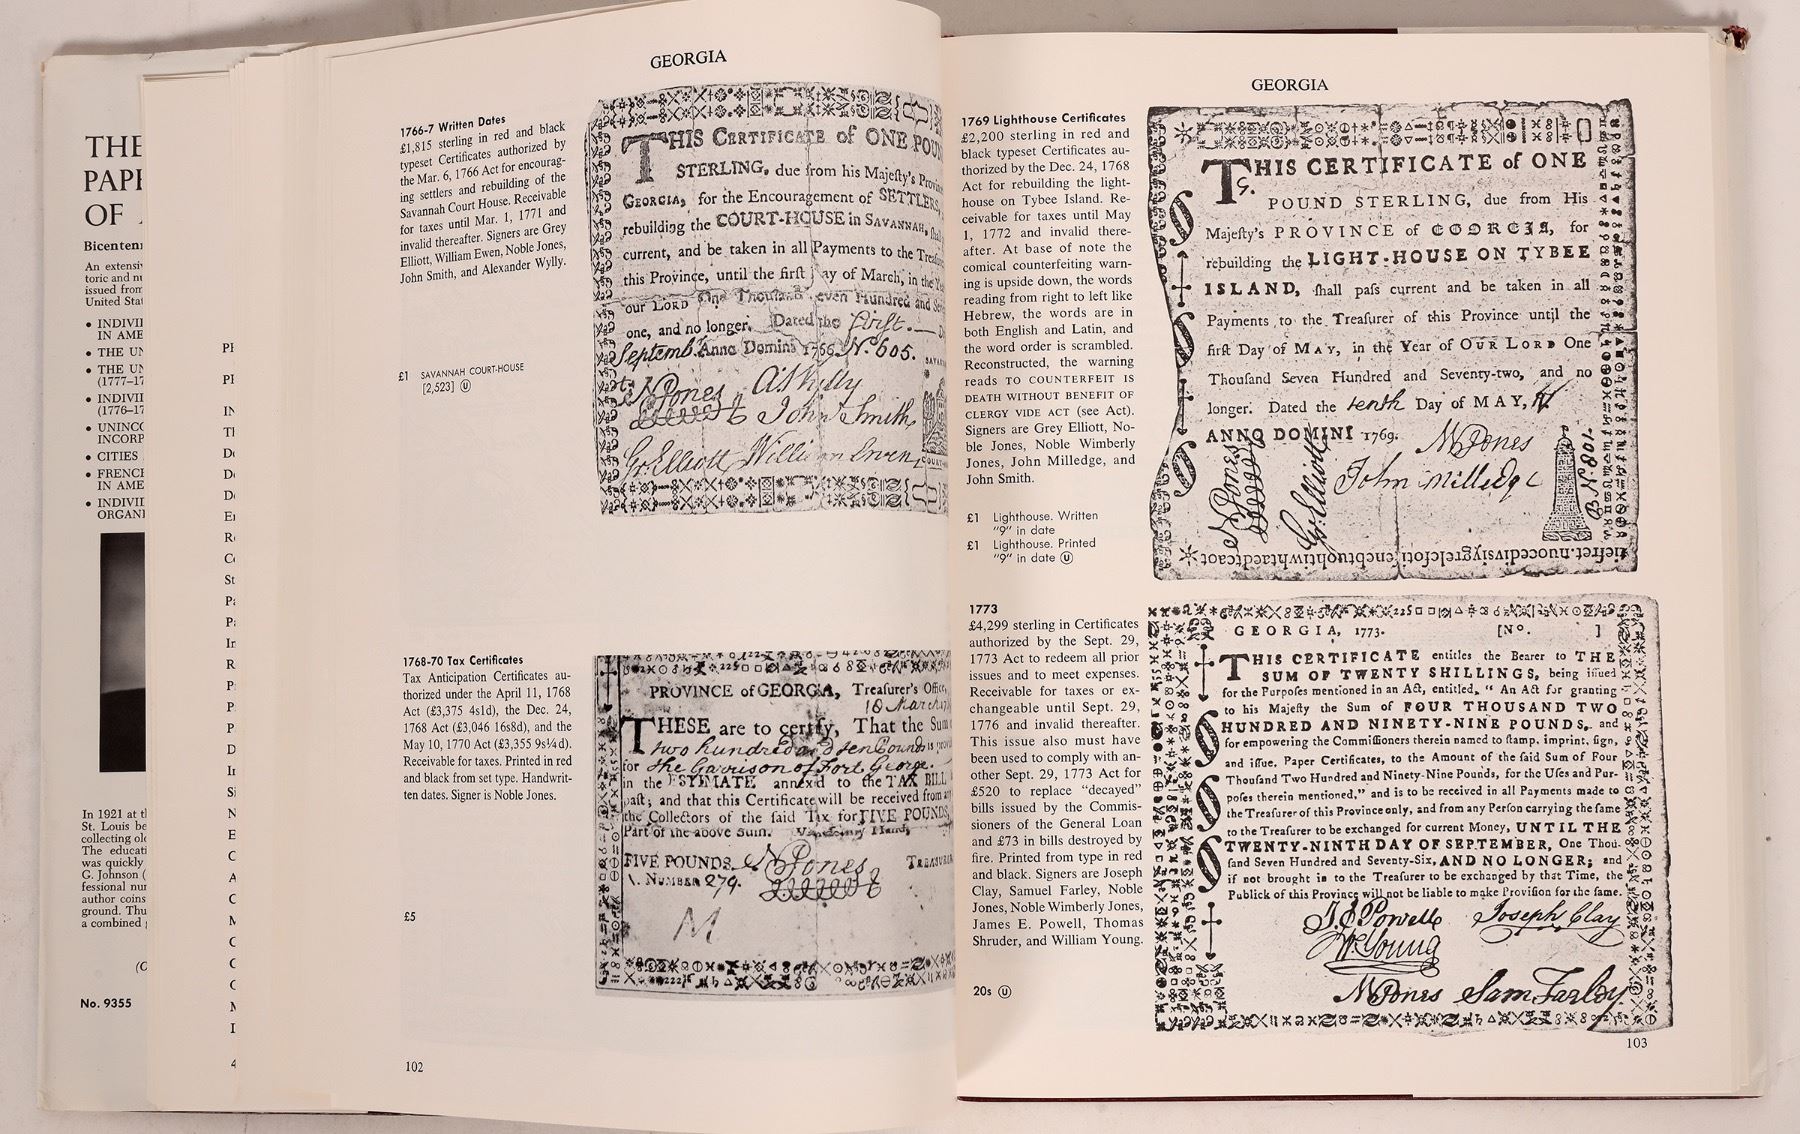 THE
PAP
OF
Bicenten
An extensiv
toric and nu
issued from
United Stat
• INDIVII
IN AME
• THE UN
• THE UN
(1777–17
• INDIVII
(1776–17
• UNINCO
INCORP
• CITIES
• FRENCH
IN AME
• INDIVII
ORGANI
In 1921 at th
St. Louis be
collecting old
The educati
was quickly
G. Johnson (
fessional nur
author coins
ground. Thu
a combined
No. 9355
GEORGIA
1766-7 Written Dates
£1,815 sterling in red and black
typeset Certificates authorized by
the Mar. 6, 1766 Act for encourag-
ing settlers and rebuilding of the
Savannah Court House. Receivable
for taxes until Mar. 1, 1771 and
invalid thereafter. Signers are Grey
Elliott, William Ewen, Noble Jones,
John Smith, and Alexander Wylly.
£1 SAVANNAH COURT-HOUSE
[2,523] Ⓤ
THIS CERTIFICATE of ONE POUN
STERLING, due from his Majeſty's Provin
GEORGIA, for the Encouragement of SETTLERS,
rebuilding the COURT-HOUSE in SAVANNAH, ſhall
current, and be taken in all Payments to the Treaſu
this Province, until the firſt ay of March, in the Y
our LORD One Thouſand even Hundred and Sev
one, and no longer. Dated the First. D
Septemb. Anno Domini 1766. No. 605.
N Jones A Wylly
John Smith
Gr. Elliott William Ewen
1768-70 Tax Certificates
Tax Anticipation Certificates au-
thorized under the April 11, 1768
Act (£3,375 4s1d), the Dec. 24,
1768 Act (£3,046 16s8d), and the
May 10, 1770 Act (£3,355 9s¼d).
Receivable for taxes. Printed in red
and black from set type. Handwrit-
ten dates. Signer is Noble Jones.
£5
PROVINCE of GEORGIA, Treaſurer's Office,
18 March
THESE are to certify, That the Sum
two hundred and ten Pounds is
for the Garrison of Fort George.
in the ESTIMATE annexed to the TAX BILL
paſt; and that this Certificate will be received from any
the Collectors of the ſaid Tax for FIVE POUNDS,
Part of the above Sum. Hand,
FIVE POUNDS. N Jones TREASURER
NUMBER 279.
M
102
GEORGIA
1769 Lighthouse Certificates
£2,200 sterling in red and
black typeset Certificates au-
thorized by the Dec. 24, 1768
Act for rebuilding the light-
house on Tybee Island. Re-
ceivable for taxes until May
1, 1772 and invalid there-
after. At base of note the
comical counterfeiting warn-
ing is upside down, the words
reading from right to left like
Hebrew, the words are in
both English and Latin, and
the word order is scrambled.
Reconstructed, the warning
reads TO COUNTERFEIT IS
DEATH WITHOUT BENEFIT OF
CLERGY VIDE ACT (see Act).
Signers are Grey Elliott, No-
ble Jones, Noble Wimberly
Jones, John Milledge, and
John Smith.
£1 Lighthouse. Written
"9" in date
£1 Lighthouse. Printed
"9" in date Ⓤ
THIS CERTIFICATE of ONE
POUND STERLING, due from His
Majeſty's PROVINCE of GEORGIA, for
rebuilding the LIGHT-HOUSE ON TYBEE
ISLAND, ſhall paſs current and be taken in all
Payments to the Treaſurer of this Province until the
firſt Day of MAY, in the Year of OUR LORD One
Thouſand Seven Hundred and Seventy-two, and no
longer. Dated the tenth Day of MAY,
ANNO DOMINI 1769. NW Jones
John Milledge
N Jones
Gr. Elliott
B No 801.
1773
£4,299 sterling in Certificates
authorized by the Sept. 29,
1773 Act to redeem all prior
issues and to meet expenses.
Receivable for taxes or ex-
changeable until Sept. 29,
1776 and invalid thereafter.
This issue also must have
been used to comply with an-
other Sept. 29, 1773 Act for
£520 to replace "decayed"
bills issued by the Commis-
sioners of the General Loan
and £73 in bills destroyed by
fire. Printed from type in red
and black. Signers are Joseph
Clay, Samuel Farley, Noble
Jones, Noble Wimberly Jones,
James E. Powell, Thomas
Shruder, and William Young.
20s Ⓤ
GEORGIA, 1773. [No. ]
THIS CERTIFICATE entitles the Bearer to THE
SUM OF TWENTY SHILLINGS, being iſſued
for the Purpoſes mentioned in an Act, entitled, “ An Act for granting
to his Majeſty the Sum of FOUR THOUSAND TWO
HUNDRED AND NINETY-NINE POUNDS, and
for empowering the Commiſſioners therein named to ſtamp, imprint, ſign,
and iſſue, Paper Certificates, to the Amount of the ſaid Sum of Four
Thouſand Two Hundred and Ninety-Nine Pounds, for the Uſes and Pur-
poſes therein mentioned,” and is to be received in all Payments made to
the Treaſurer of this Province only, and from any Perſon carrying the ſame
to the Treaſurer to be exchanged for current Money, UNTIL THE
TWENTY-NINTH DAY OF SEPTEMBER, One Thou-
ſand Seven Hundred and Seventy-Six, AND NO LONGER; and
if not brought in to the Treaſurer to be exchanged by that Time, the
Publick of this Province will not be liable to make Proviſion for the ſame.
J. E Powell Joseph Clay
Wm Young
NW Jones Sam Farley
103